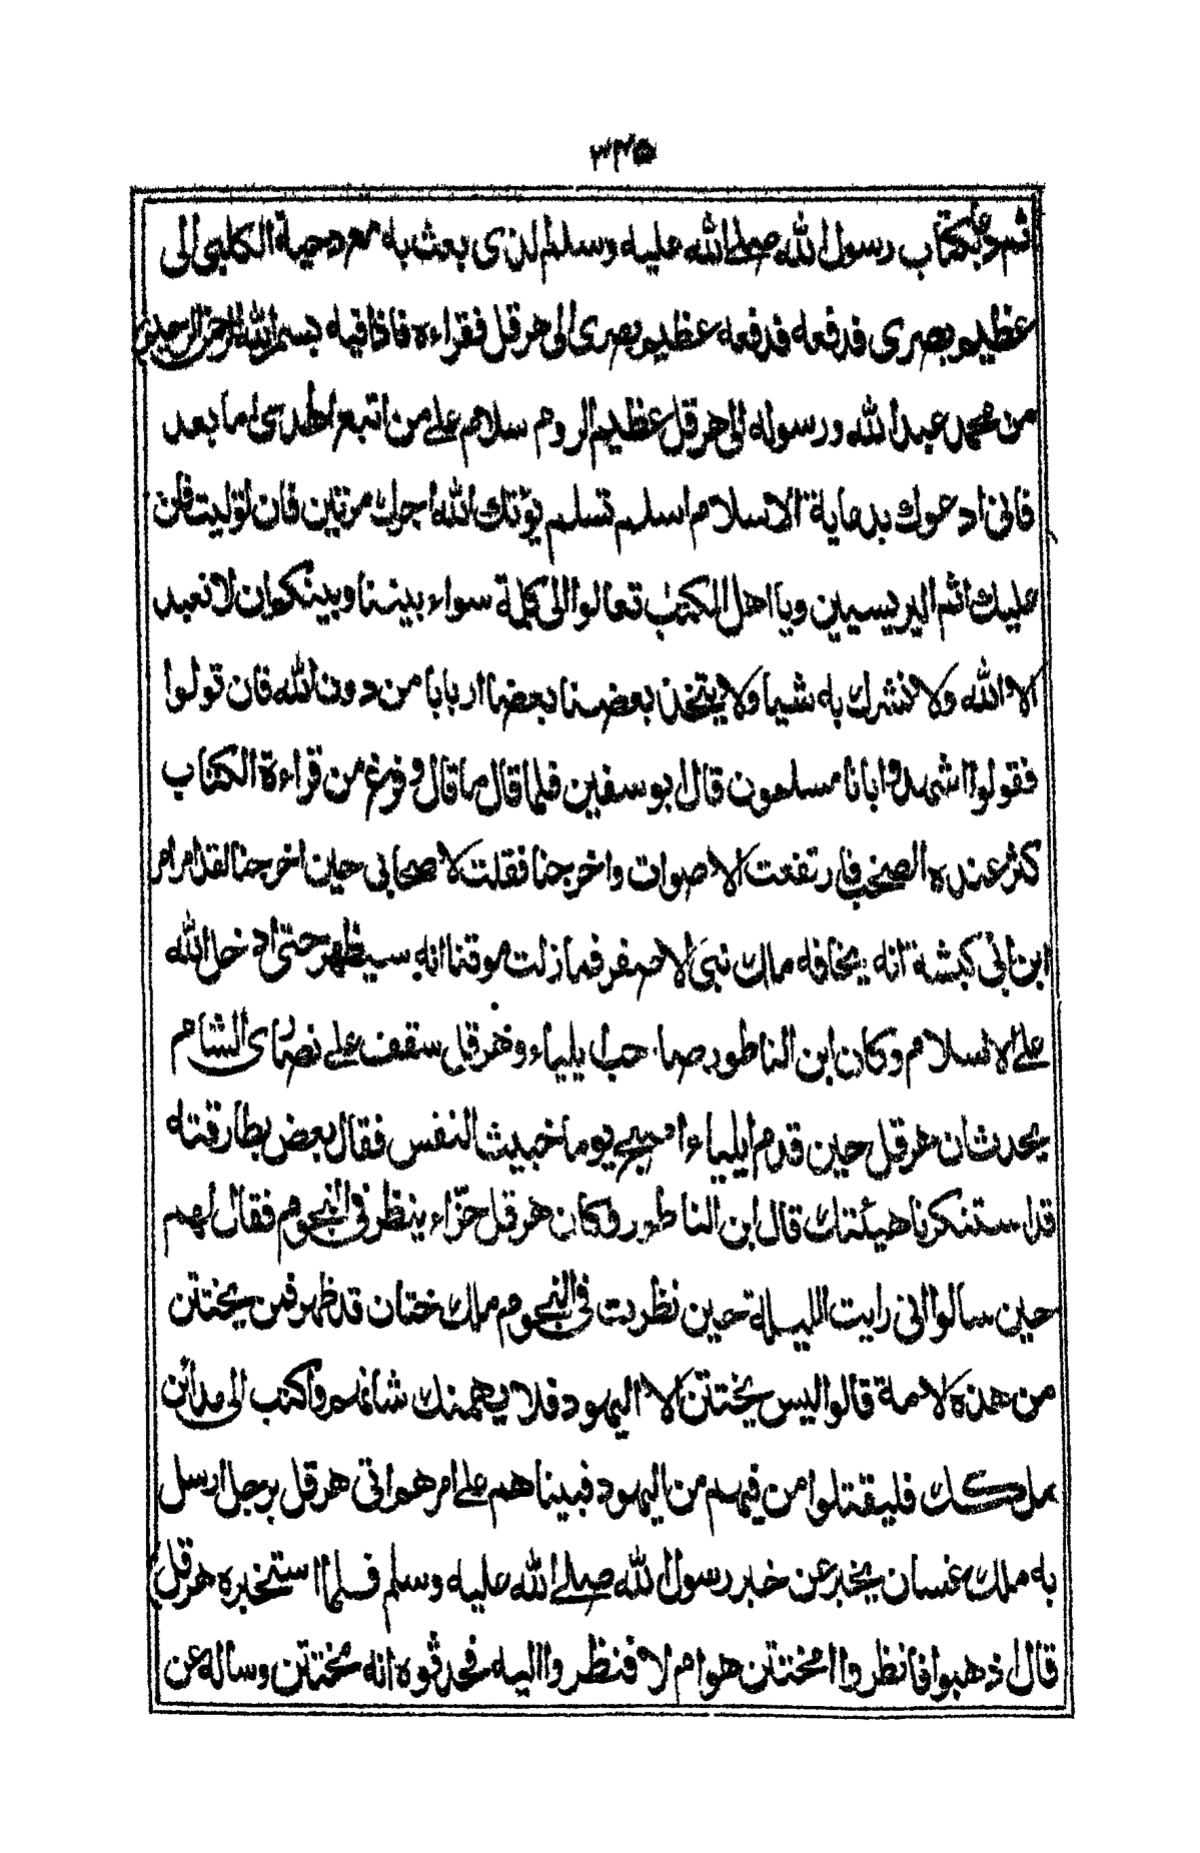 ٣٢٥
ثم دعا بكتاب رسول الله صلے الله عليه وسلم الذى بعث به مع دحية الكلبى الى
عظيم بصرى فدفعه فدفعه عظيم بصرى الى هرقل فقراءه فاذا فيه بسم الله الرحمن الرحيم
من محمد عبد الله ورسوله الى هرقل عظيم الروم سلام على من اتبع الهدى اما بعد
فانى ادعوك بدعاية الاسلام اسلم تسلم يؤتك الله اجرك مرتين فان توليت فان
عليك اثم اليريسيين ويا اهل الكتب تعالوا الى كلمة سواء بيننا وبينكم ان لا نعبد
الا الله ولا نشرك به شيا ولا يتخذ بعضنا بعضا اربابا من دون الله فان تولوا
فقولوا اشهدوا بانا مسلمون قال ابو سفين فلما قال ما قال وفرغ من قراءة الكتاب
كثر عنده الصخب فارتفعت الاصوات واخرجنا فقلت لاصحابى حين اخرجنا لقد امر امر
ابن ابى كبشة انه يخافه ملك نبى الاصفر فما زلت موقنا انه سيظهر حتى ادخل الله
على الاسلام وكان ابن الناطور صاحب ايلياء وهرقل سقف على نصارى الشام
يحدث ان هرقل حين قدم ايلياء اصبح يوما خبيث النفس فقال بعض بطارقته
قد استنكرنا هيئتك قال ابن الناطور وكان هرقل حزّاء ينظر فى النجوم فقال لهم
حين سالوا انى رايت الليلة حين نظرت فى النجوم ملك ختان قد ظهر فمن يختتن
من هذه الامة قالوا ليس يختتن الا اليهود فلا يهمنك شانهم واكتب الى مدائن
ملكك فليقتلوا من فيهم من اليهود فبيناهم على امرهم اتى هرقل برجل ارسل
به ملك غسان يخبر عن خبر رسول الله صلے الله عليه وسلم فلما استخبره هرقل
قال اذهبوا فانظروا امختتن هو ام لا فنظروا اليه فحدثوه انه مختتن وساله عن